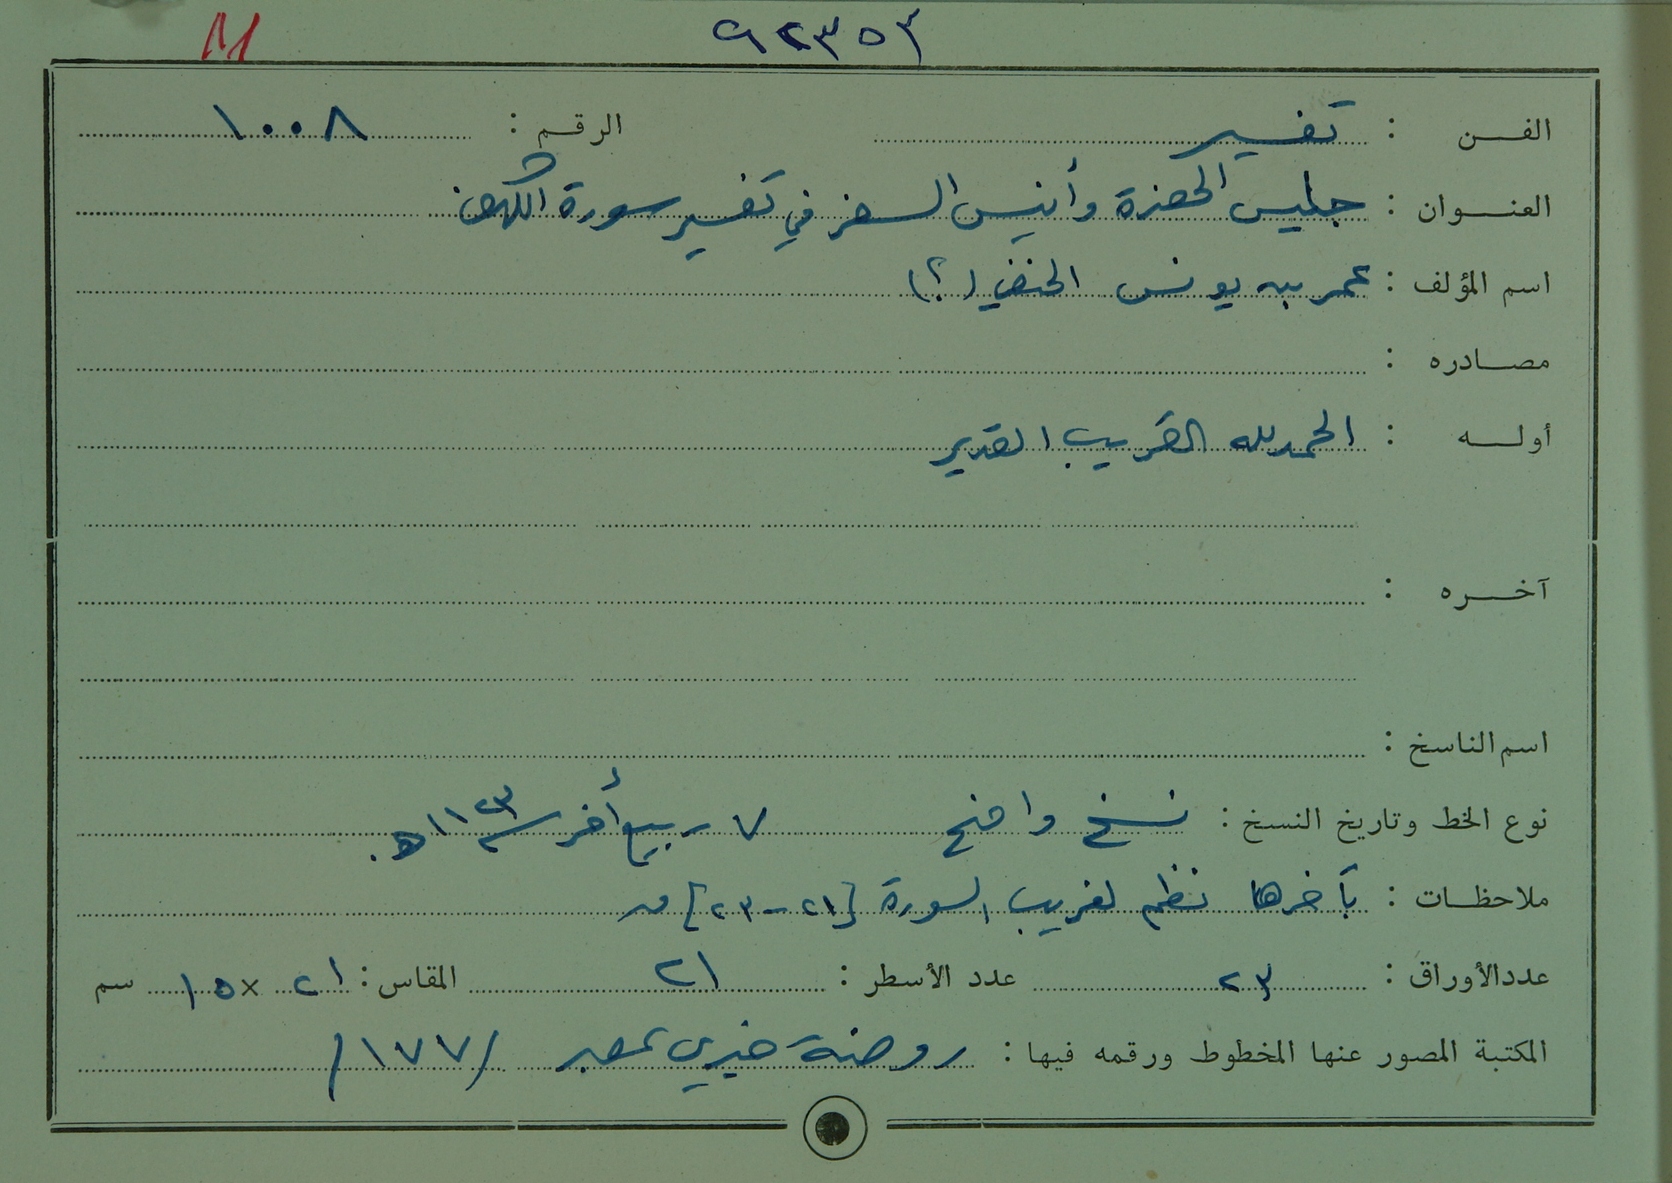 ٩٢٣٥٣
الفــن : تفسير الرقم : ١٠٠٨
العنــوان : جليس الحضرة وأنيس السفر في تفسير سورة الكهف
اسم المؤلف : عمر بن يونس الحنفي (؟)
مصــادره :
أولــه : الحمد لله القريب القدير
آخــره :
اسم الناسخ :
نوع الخط وتاريخ النسخ : نسخ واضح ٧ ربيع أخر سنة ١١٢٣ هـ.
ملاحظــات : بآخرها نظم لغريب السورة [٢١-٢٣] ق
عدد الأوراق : ٢٣ عدد الأسطر : ٢١ المقاس : ٢١ × ١٥ سم
المكتبة المصور عنها المخطوط ورقمه فيها : روضة خيري بمصر /١٧٧/